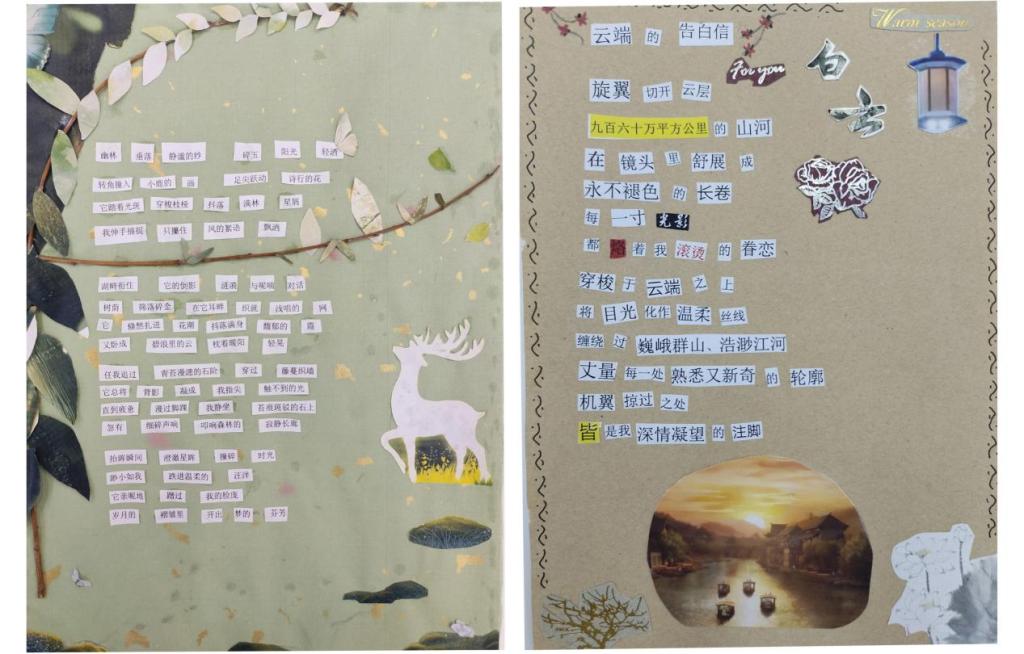 幽林 垂落 静谧的纱 碎玉 阳光 轻洒
转角撞入 小鹿的 画 足尖跃动 诗行的花
它踏着光斑 穿梭枝桠 抖落 满林 星屑
我伸手捕捉 只攥住 风的絮语 飘洒
湖畔衔住 它的倒影 涟漪 与呢喃 对话
树荫 筛落碎金 在它耳畔 织就 浅唱的 网
它 倏然扎进 花潮 抖落满身 馥郁的 霞
又卧成 碧浪里的云 枕着暖阳 轻晃
任我追过 青苔漫过的石阶 穿过 藤蔓织墙
它总将 背影 凝成 我指尖 触不到的光
直到疲惫 漫过脚踝 我静坐 苔痕斑驳的石上
忽有 细碎声响 叩响森林的 寂静长廊
抬眸瞬间 澄澈星眸 撞碎 时光
渺小如我 跌进温柔的 汪洋
它亲昵地 蹭过 我的脸庞
岁月的 褶皱里 开出 梦的 芬芳
云端 的 告白信
Warm season
For you
白云
旋翼 切开 云层
九百六十万平方公里 的 山河
在 镜头 里 舒展 成
永不褪色 的 长卷
每 一寸 光影
都 烙 着 我 滚烫 的 眷恋
穿梭 于 云端 之 上
将 目光 化作 温柔 丝线
缠绕 过 巍峨群山、浩渺江河
丈量 每一处 熟悉又新奇 的 轮廓
机翼 掠过 之处
皆 是我 深情凝望 的 注脚